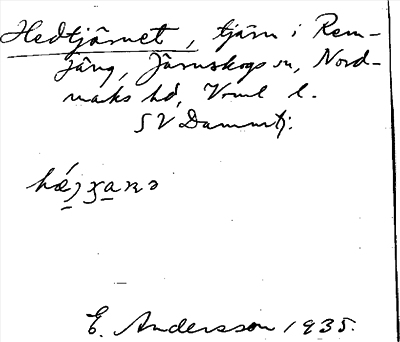 Hedtjärnet, tjärn i Rem-
jäng, Järnskogs sn, Nord-
maks hd, Vrml l.
SV Dammtj.
E. Andersson 1935.